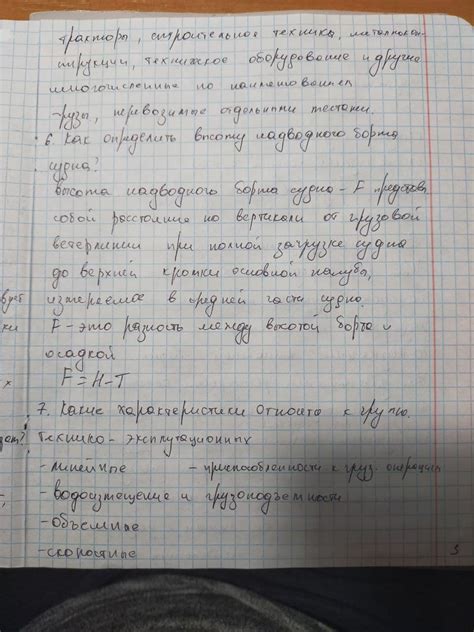 тракторы, строительное техника, металлокон-
трукции, техническое оборудование и другие
многочисленные по наименованием
грузы, перевозимые отдельными местами.
6. Как определить высоту надводного борта
судна?
Высота надводного борта судно - F представ
собой расстояние по вертикали от грузовой
ватерлинии при полной загрузке судна
до верхней кромки основной палубы,
измеряемое в средней части судно.
F - это разность между высотой борта и
осадкой
F = H - T
7. Какие характеристики относите к групп.
технико - эксплутационных
- линейные - приспособленности к груз. операция
- водоизмещение и грузоподъемности
- объемные
- скоростные